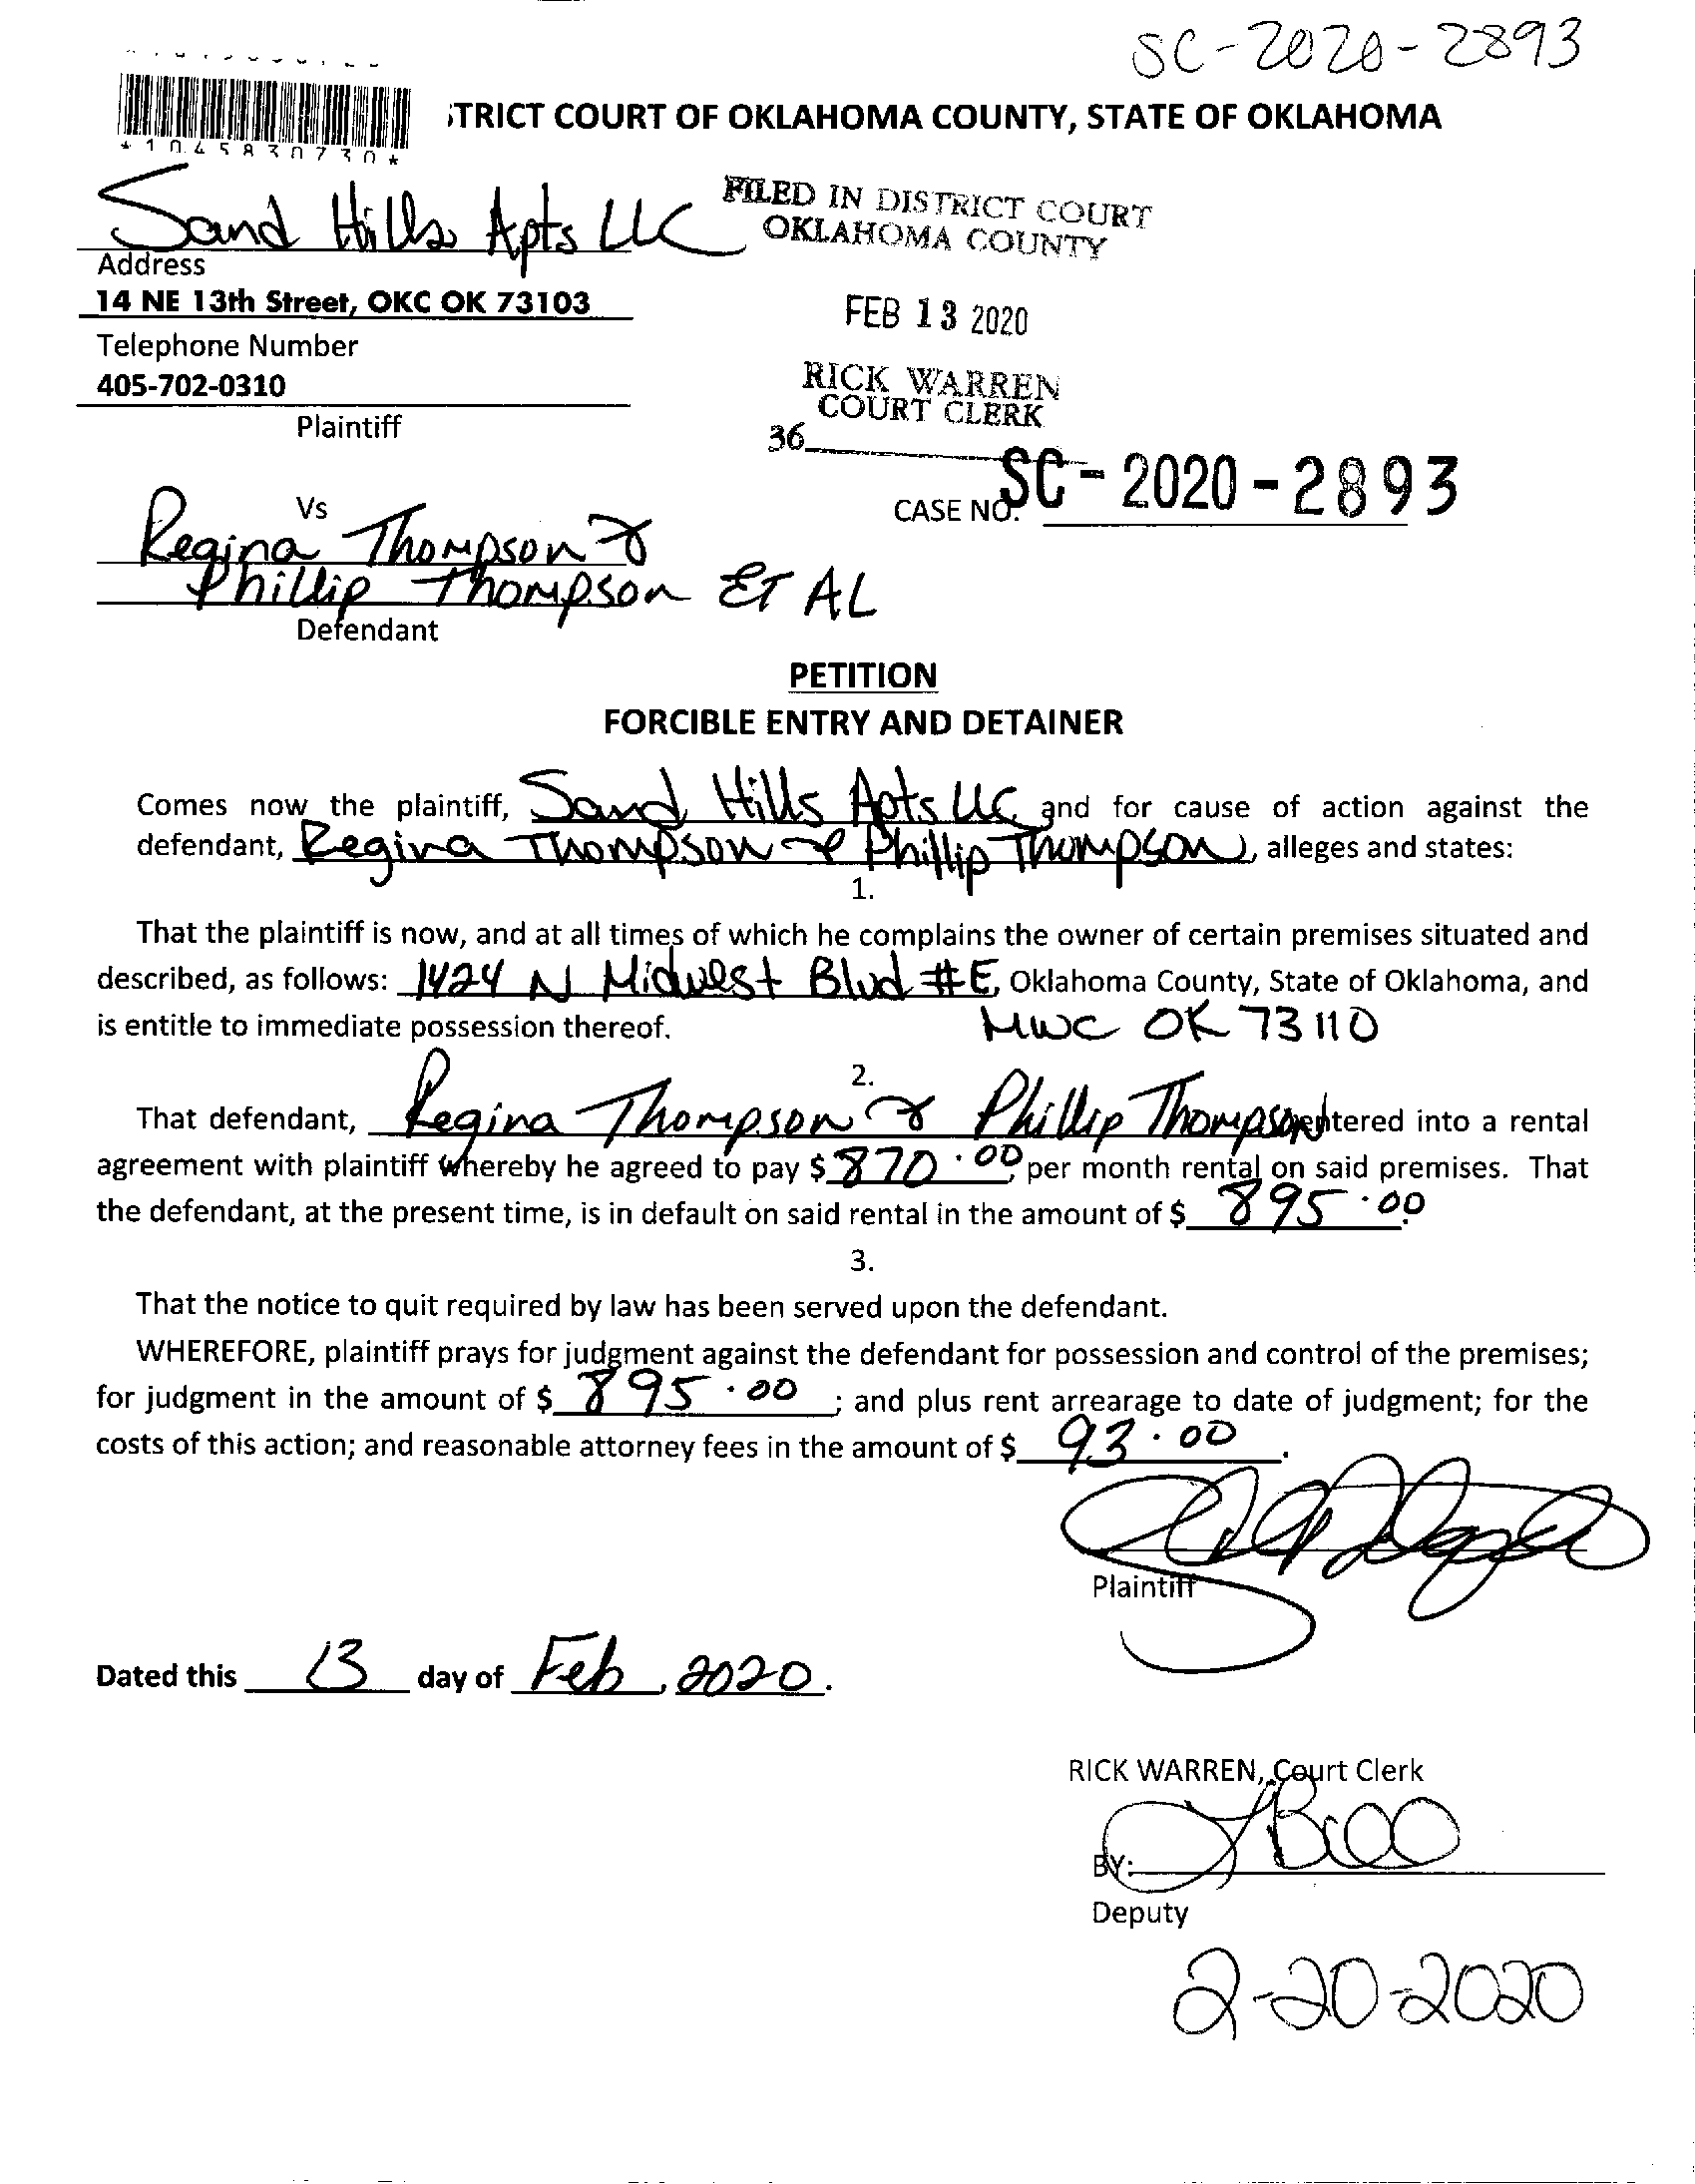 SC-2020-2893
TRICT COURT OF OKLAHOMA COUNTY, STATE OF OKLAHOMA
*1045830730*
Sand Hills Apts LLC
FILED IN DISTRICT COURT
OKLAHOMA COUNTY
Address
14 NE 13th Street, OKC OK 73103
FEB 13 2020
Telephone Number
405-702-0310
RICK WARREN
COURT CLERK
Plaintiff
36
CASE NO. SC-2020-2893
Vs
Regina Thompson &
Phillip Thompson ET AL
Defendant
PETITION
FORCIBLE ENTRY AND DETAINER
Comes now the plaintiff, Sand Hills Apts LLC, and for cause of action against the
defendant, Regina Thompson & Phillip Thompson, alleges and states:
1.
That the plaintiff is now, and at all times of which he complains the owner of certain premises situated and
described, as follows: 1424 N Midwest Blvd #E, Oklahoma County, State of Oklahoma, and
is entitle to immediate possession thereof. MWC OK 73110
2.
That defendant, Regina Thompson & Phillip Thompson entered into a rental
agreement with plaintiff whereby he agreed to pay $ 870.00, per month rental on said premises. That
the defendant, at the present time, is in default on said rental in the amount of $ 895.00.
3.
That the notice to quit required by law has been served upon the defendant.
WHEREFORE, plaintiff prays for judgment against the defendant for possession and control of the premises;
for judgment in the amount of $ 895.00 ; and plus rent arrearage to date of judgment; for the
costs of this action; and reasonable attorney fees in the amount of $ 93.00.
Plaintiff
Dated this 13 day of Feb, 2020.
RICK WARREN, Court Clerk
BY:
Deputy
2-20-2020